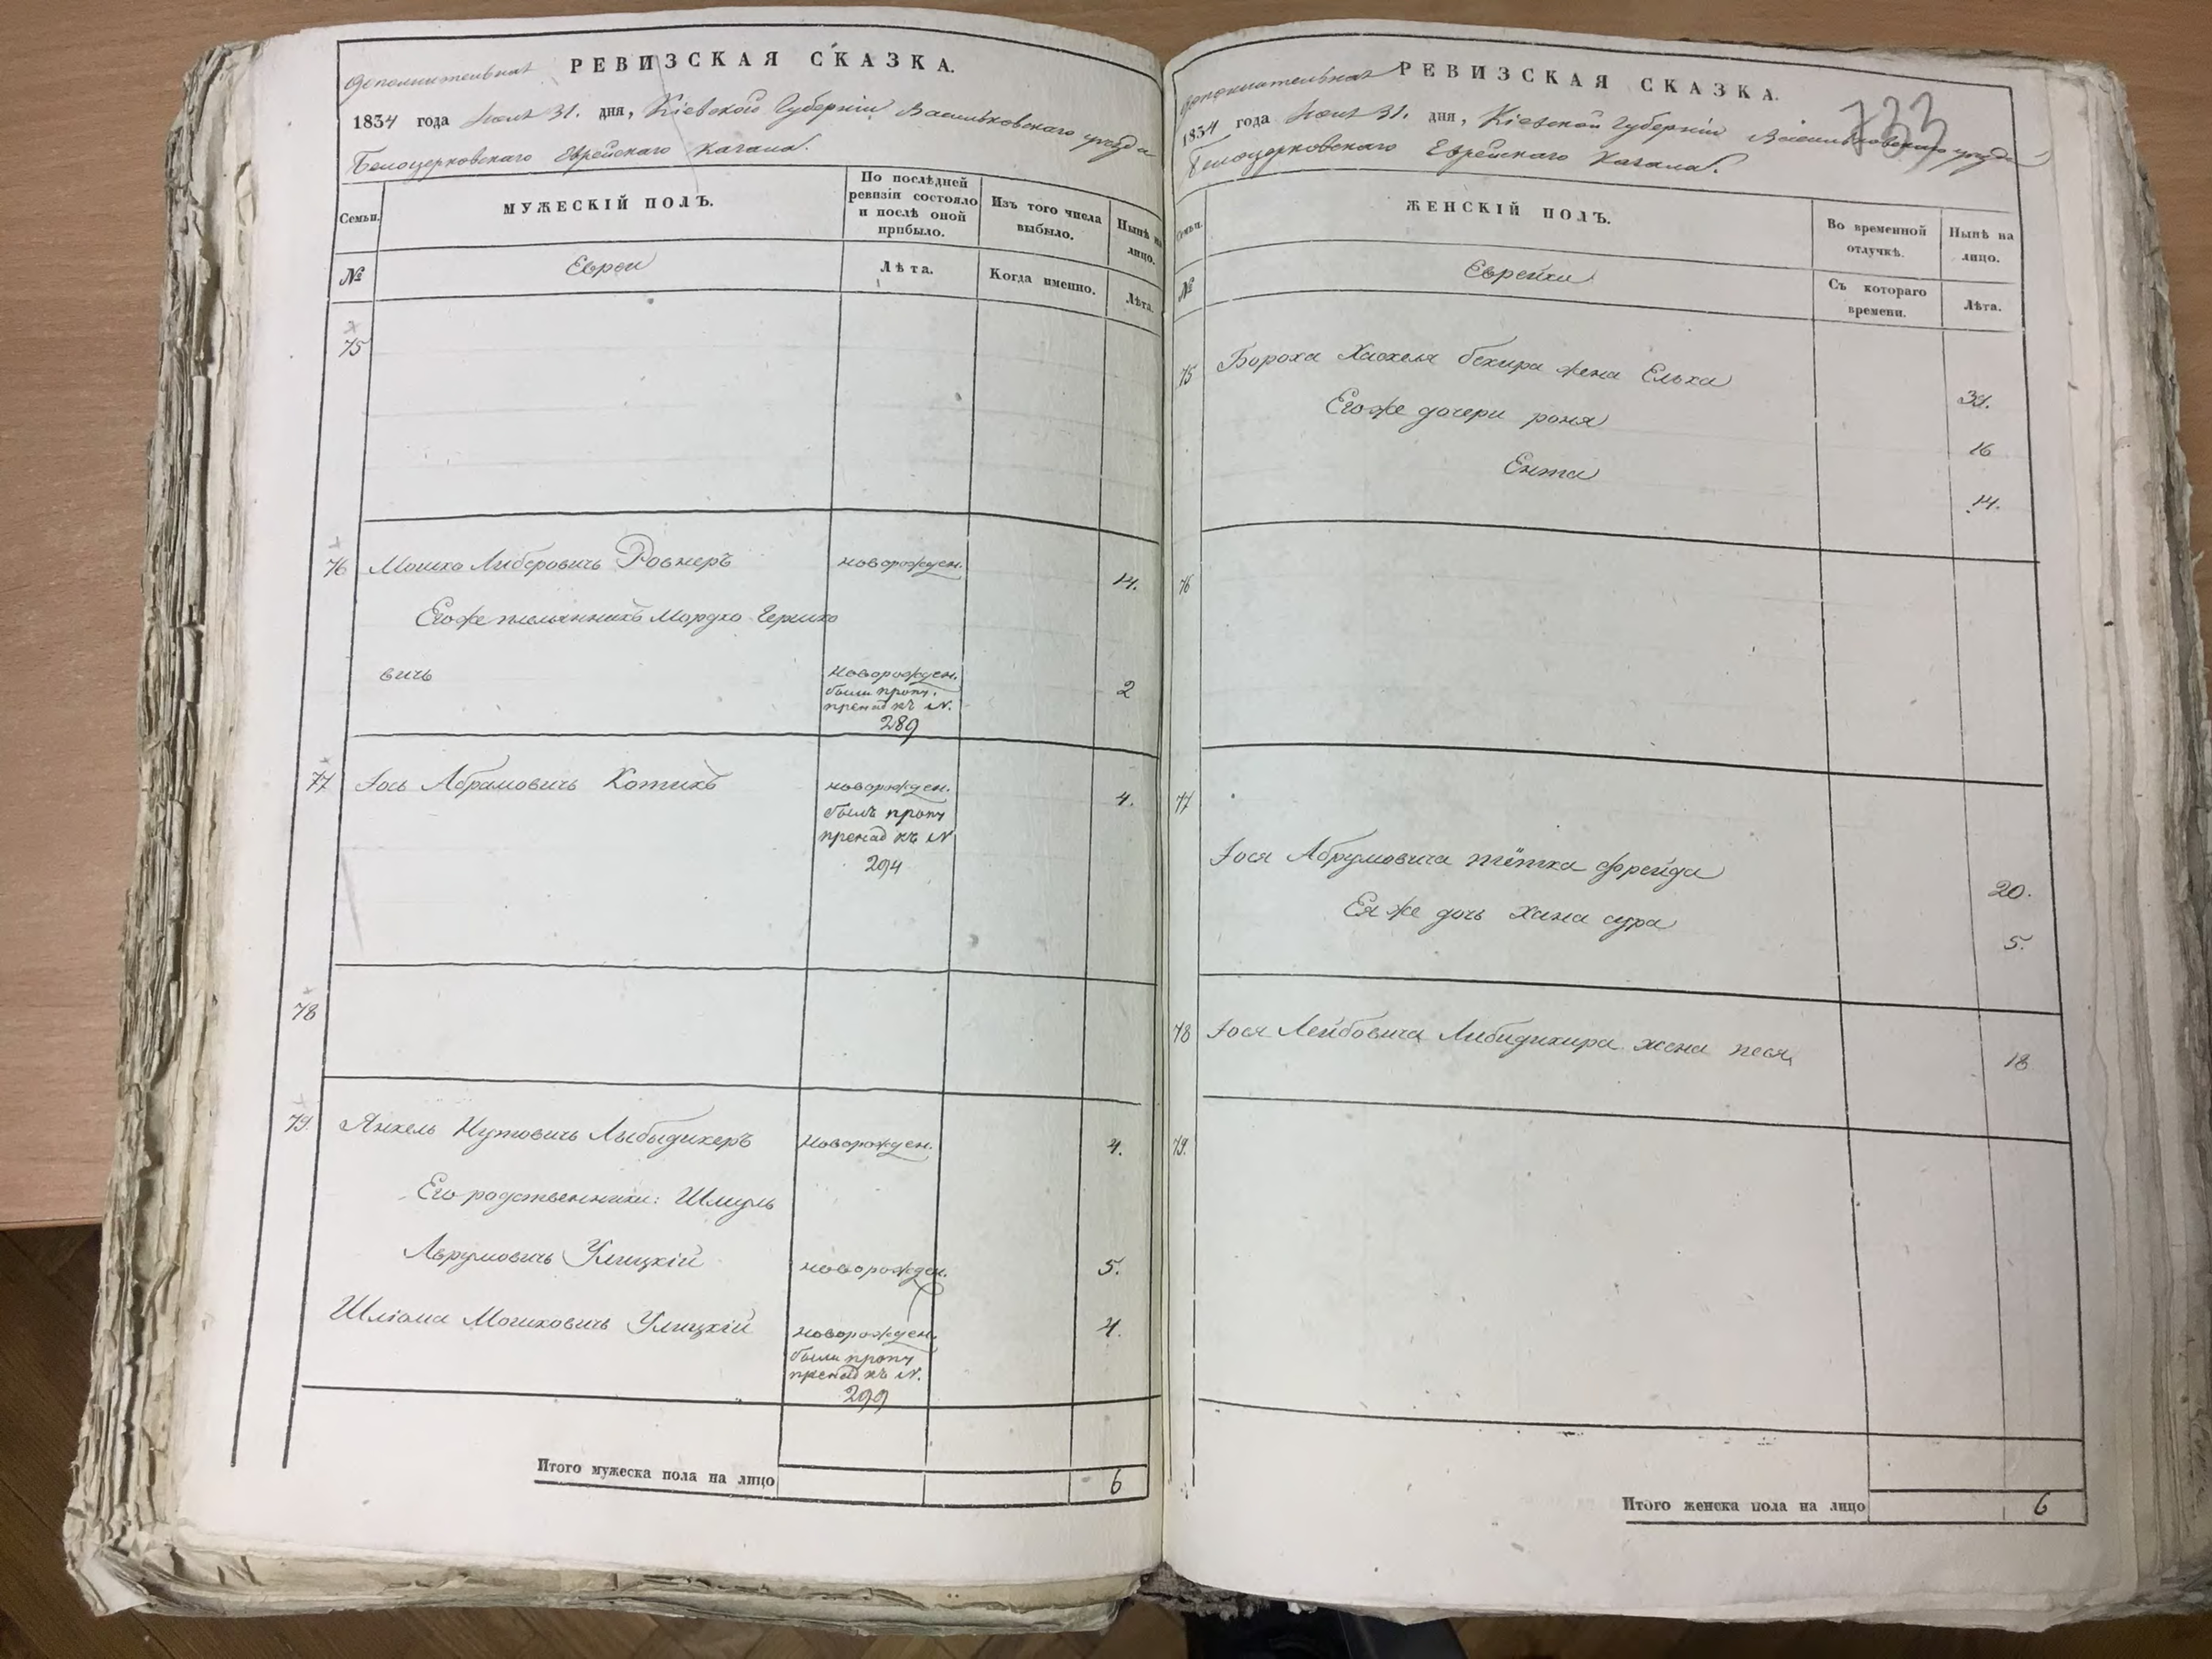 дополнительная РЕВИЗСКАЯ СКАЗКА.
1834 года Мая 31. дня, Кіевской Губерніи Васильковскаго уезда
Белоцерковскаго Еврейскаго Кагала.
Семьи.
МУЖЕСКІЙ ПОЛЪ.
По послѣдней ревизіи состояло и послѣ оной прибыло.
Изъ того числа выбыло.
Нынѣ на лицо.
№
Евреи
Лѣта.
Когда именно.
Лѣта.
75
76 Мошко Либеровичь Ровнеръ новорожден. 14.
Его же племянникъ Мордко Гершко
вичь новорожден. 2
были проп.
пренад къ N.
289
77 Іось Абрамовичь Котикъ новорожден. 4.
былъ проп
пренад къ N
294
78
79. Янкель Нутовичь Лыбыдикеръ новорожден. 4.
Его родственники: Шмуль
Аврумовичь Улицкій новорожден. 5.
Шліома Мошковичь Улицкій новорожден. 4.
были проп
пренад къ N.
299
Итого мужеска пола на лицо 6
733
дополнительная РЕВИЗСКАЯ СКАЗКА.
1834 года Мая 31. дня, Кіевской Губерніи Васильковскаго уезда
Белоцерковскаго Еврейскаго Кагала.
Семьи.
ЖЕНСКІЙ ПОЛЪ.
Во временной отлучкѣ.
Нынѣ на лицо.
№
Еврейки
Съ котораго времени.
Лѣта.
75 Бороха Хаскеля бекира жена Елька
Его же дочери роня 16
Ента 14.
76
77
Іося Абрумовича тётка фрейда 20.
Ея же дочь хана сура 5.
78 Іося Лейбовича Либидикира жена песя 18
79.
Итого женска пола на лицо 6